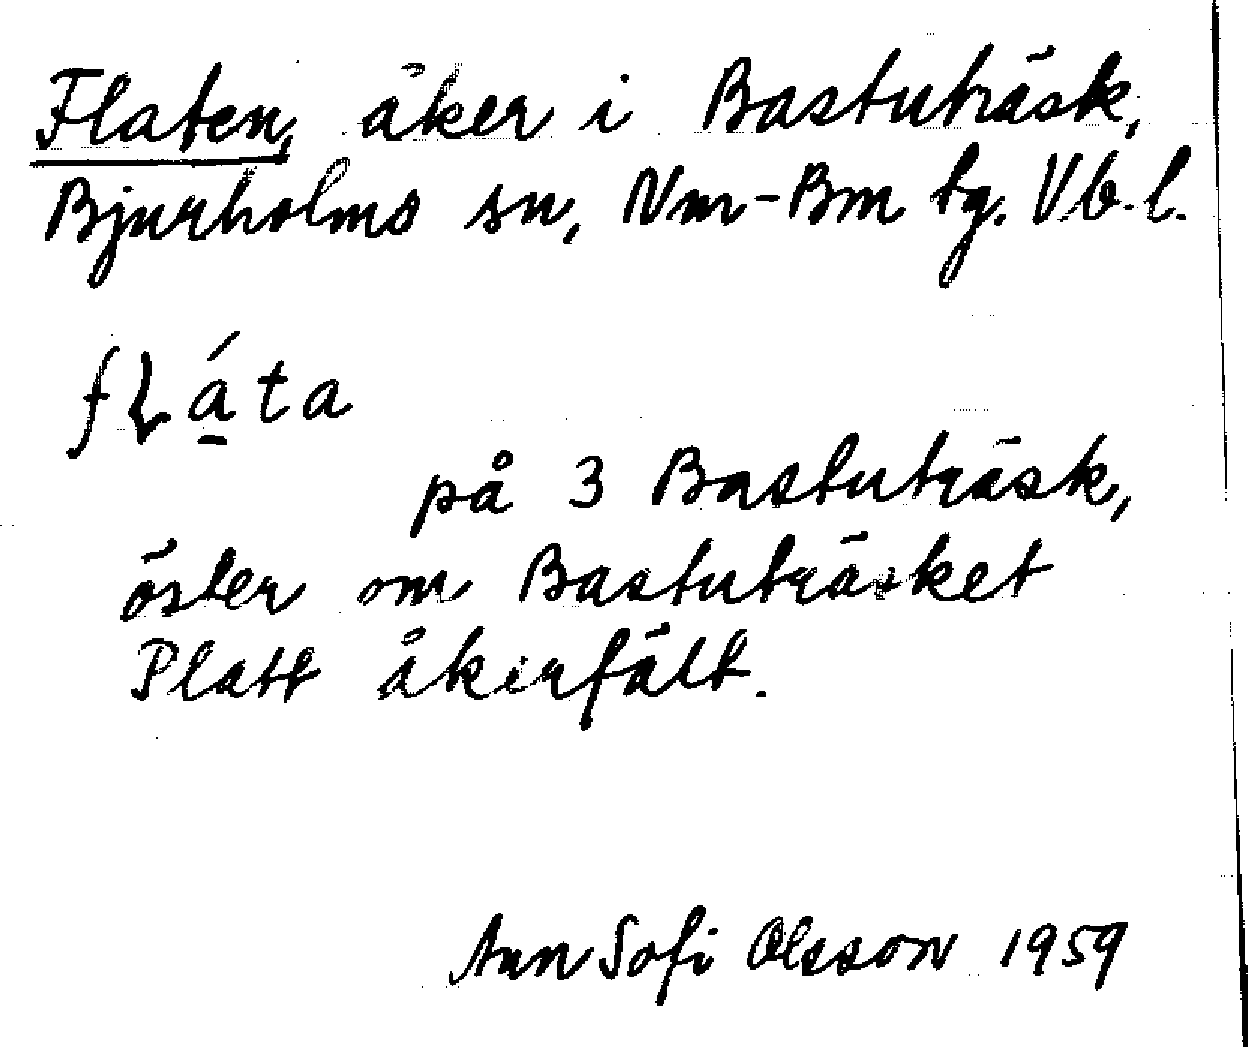 Flaten, åker i Bastuträsk,
Bjurholms sn, Nm-Bm tg. Vb. l.
fLá̱ta
på 3 Bastuträsk,
öster om Bastuträsket
Platt åkerfält.
Ann Sofi Olsson 1959